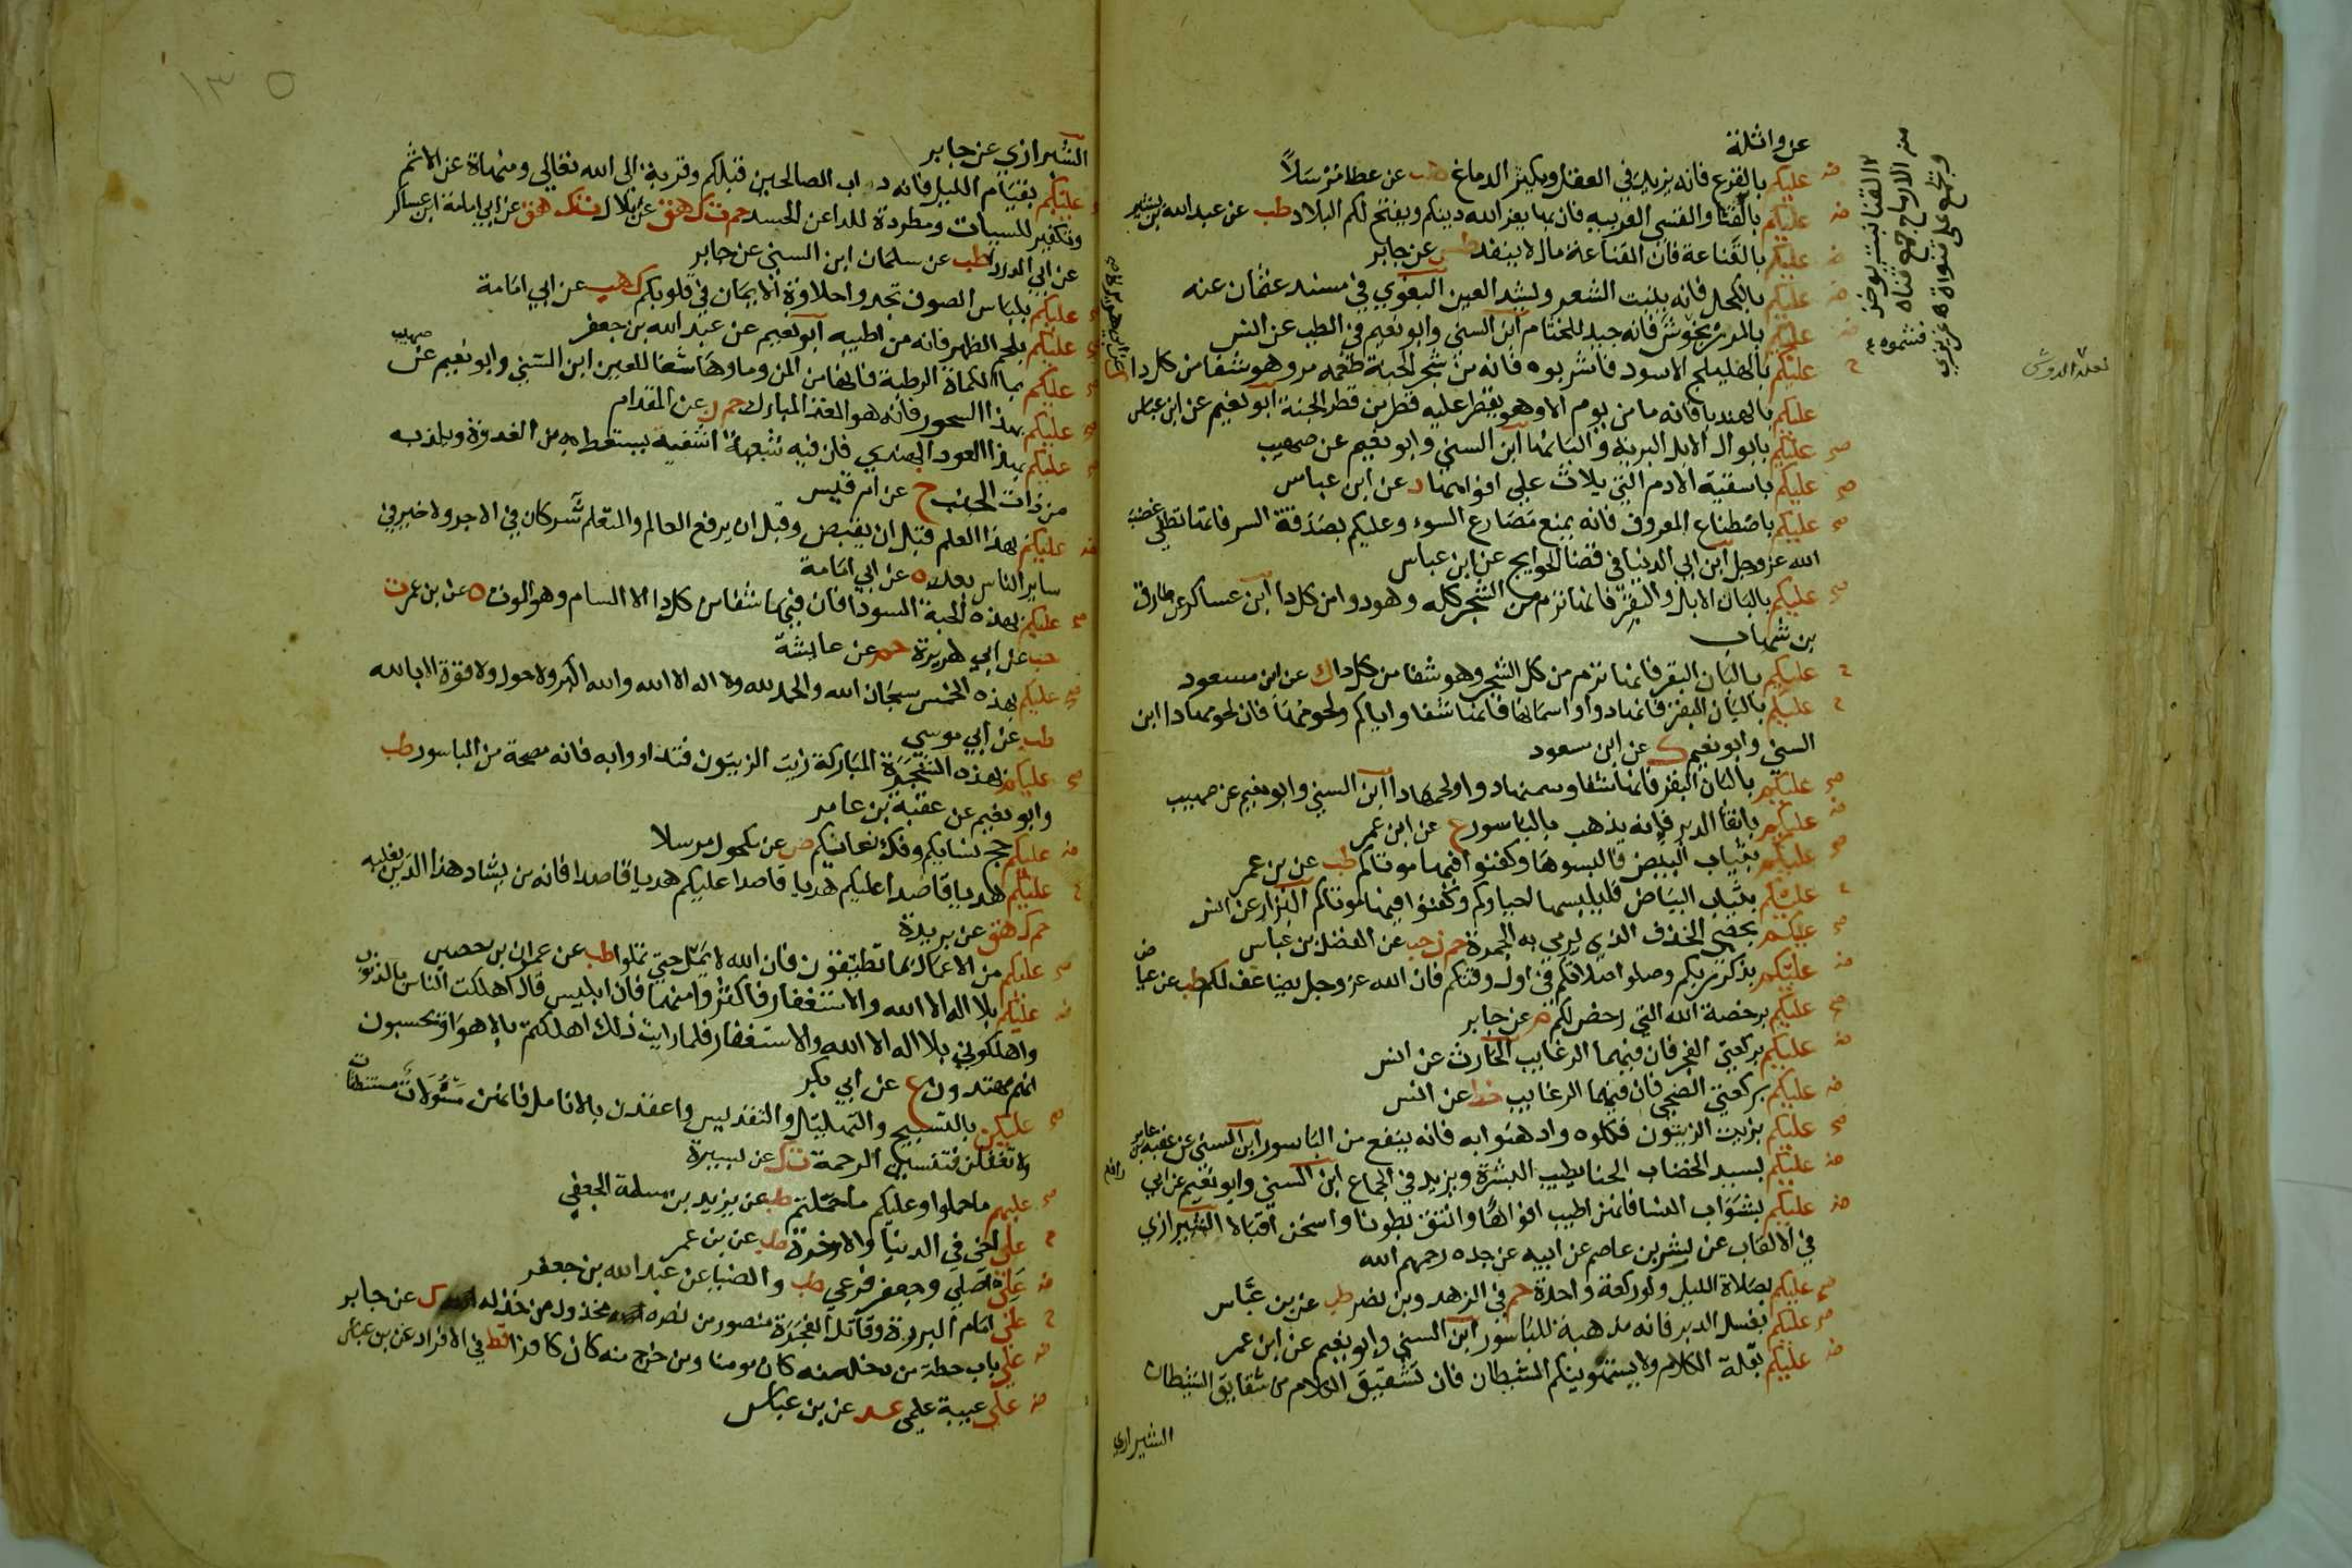 عن واثلة
عليكم بالقرع فانه يزيد في العقل ويكبر الدماغ هب عن عطا مرسلاً
عليكم بالقنا والقسي العربيه فان بها يعز الله دينكم ويفتح لكم البلاد طب عن عبد الله بن بسر
عليكم بالقناعة فان القناعة مال لا ينفد طس عن جابر
عليكم بالكحل فانه ينبت الشعر ويشد العين البغوي في مسند عثمان عنه
عليكم بالمرزنجوش فانه جيد للخشام ابن السني وابو نعيم في الطب عن انس
عليكم بالهليلج الاسود فاشربوه فانه من شجر الجنة طعمه مر وهو شفا من كل دا
عليكم بالهندبا فانه ما من يوم الا وهو يقطر عليه قطر من قطر الجنة ابو نعيم عن ابن عباس
عليكم بابوال الابل البرية والبانها ابن السني وابو نعيم عن صهيب
عليكم باسقية الادم التي يلاث على افواهها د عن ابن عباس
عليكم باصطناع المعروف فانه يمنع مصارع السوء وعليكم بصدقة السر فانها تطفي غضب
الله عز وجل ابن ابي الدنيا في قضا الحوايج عن ابن عباس
عليكم بالبان الابل والبقر فانها ترم من الشجر كله وهو دوا من كل دا ابن عساكر عن طارق
بن شهاب
عليكم بالبان البقر فانها ترم من كل الشجر وهو شفا من كل دا ك عن ابن مسعود
عليكم بالبان البقر فانها دوا واسمانها فانها شفا واياكم ولحومها فان لحومها دا ابن
السني وابو نعيم ك عن ابن مسعود
عليكم بالبان البقر فانها شفا وسمنها دوا ولحمها دا ابن السني وابو نعيم عن صهيب
عليكم بانقا الدبر فانه يذهب بالباسور ع عن ابن عمر
عليكم بثياب البيض فالبسوها وكفنوا فيها موتاكم طب عن بن عمر
عليكم بثياب البياض فليلبسها احياوكم وكفنوا فيها موتاكم البزار عن انس
عليكم بحصي الخذف الذي يرمي به الجمرة حم ن حب عن الفضل بن عباس
عليكم بذكر ربكم وصلوا صلاتكم في اول وقتكم فان الله عز وجل يضاعف لكم طب عن عيا
ض
عليكم برخصة الله التي رخص لكم م عن جابر
عليكم بركعتي الفجر فان فيهما الرغايب الحارث عن انس
عليكم بركعتي الضحي فان فيهما الرغايب خط عن انس
عليكم بزيت الزيتون فكلوه وادهنوا به فانه ينفع من الباسور ابن السني عن عقبة بن عامر
عليكم بسيد الخضاب الحنا يطيب البشرة ويزيد في الجماع ابن السني وابو نعيم عن ابي
رافع
عليكم بشواب النسا فانهن اطيب افواها وانتق بطونا واسخن اقبالا الشيرازي
في الالقاب عن بشر بن عاصم عن ابيه عن جده رحمهم الله
عليكم بصلاة الليل ولو ركعة واحدة حم في الزهد وبن نصر طب عن بن عباس
عليكم بغسل الدبر فانه مذهبة للباسور ابن السني وابو نعيم عن ابن عمر
عليكم بقلة الكلام ولا يستهوينكم الشيطان فان تشقيق الكلام من شقايق الشيطان
الشيرازي
١٣٥
الشيرازي عن جابر
عليكم بقيام الليل فانه داب الصالحين قبلكم وقربة الى الله تعالي ومنهاة عن الاثم
وتكفير للسييات ومطردة للدا عن الجسد حم ت ك هق عن بلال ت ك هق عن ابي امامة ابن عساكر
عن ابي الدردا طب عن سلمان ابن السني عن جابر
عليكم بلباس الصوف تجدوا حلاوة الايمان في قلوبكم ك هب عن ابي امامة
عليكم بلحم الظهر فانه من اطيبه ابو نعيم عن عبد الله بن جعفر
عليكم بماا الكماة الرطبة فانها من المن وماوها شفا للعين ابن السني وابو نعيم عن
صهيب
عليكم بهذا السحور فانه هو الغذا المبارك حم ن عن المقدام
عليكم بهذا العود الهندي فان فيه سبعة اشفية يستعط به من العذرة ويلد به
من ذات الجنب خ عن ام قيس
عليكم بهذا العلم قبل ان يقبض وقبل ان يرفع العالم والمتعلم شركان في الاجر ولا خير في
ساير الناس بعد ه عن ابي امامة
عليكم بهذه الحبة السودا فان فيها شفا من كل دا الا السام وهو الموت ه عن بن عمر ت
حب عن ابي هريرة حم عن عايشة
عليكم بهذه الخمس سبحان الله والحمد لله ولا اله الا الله والله اكبر ولا حول ولا قوة الا بالله
طب عن ابي موسي
عليكم بهذه الشجرة المباركة زيت الزيتون فتداووا به فانه مصحة من الباسور طب
وابو نعيم عن عقبة بن عامر
عليكم حج نسايكم وفك عانيكم ص عن مكحول مرسلا
عليكم هديا قاصدا عليكم هديا قاصدا عليكم هديا قاصدا فانه من يشاد هذا الدين يغلبه
حم ك هق عن بريدة
عليكم من الاعمال بما تطيقون فان الله لا يمل حتي تملوا طب عن عمران بن حصين
عليكم بلا اله الا الله والاستغفار فاكثروا منهما فان ابليس قال اهلكت الناس بالذنوب
واهلكوني بلا اله الا الله والاستغفار فلما رايت ذلك اهلكتهم بالاهوا وهم يحسبون
انهم مهتدون ع عن ابي بكر
عليكن بالتسبيح والتهليل والتقديس واعقدن بالانامل فانهن مسؤلات مستنطقات
ولا تغفلن فتنسين الرحمة ت ك عن يسيرة
عليهم ما حملوا وعليكم ما حملتم طب عن يزيد بن سلمة الجعفي
علي اخي في الدنيا والاخرة طب عن بن عمر
علي اصلي وجعفر فرعي طب والضيا عن عبد الله بن جعفر
علي امام البررة وقاتل الفجرة منصور من نصره مخذول من خذله ك عن جابر
علي باب حطة من دخل منه كان مومنا ومن خرج منه كان كافرا قط في الافراد عن بن عباس
علي عيبة علمي عد عن بن عباس